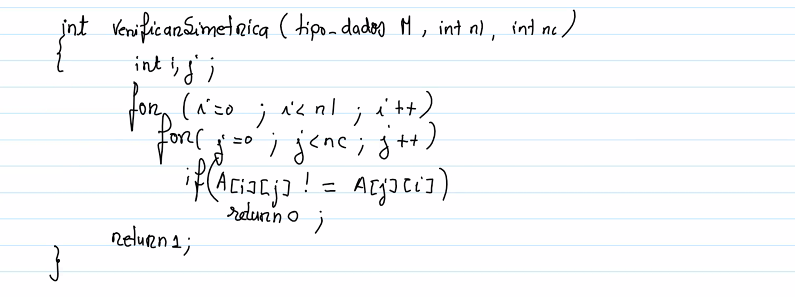 int verificarSimetrica (tipo_dados M, int nl, int nc)
{
int i,j ;
for (i=0 ; i< nl ; i++)
for( j=0 ; j<nc ; j++)
if(A[i][j] != A[j][i])
return 0 ;
return 1;
}